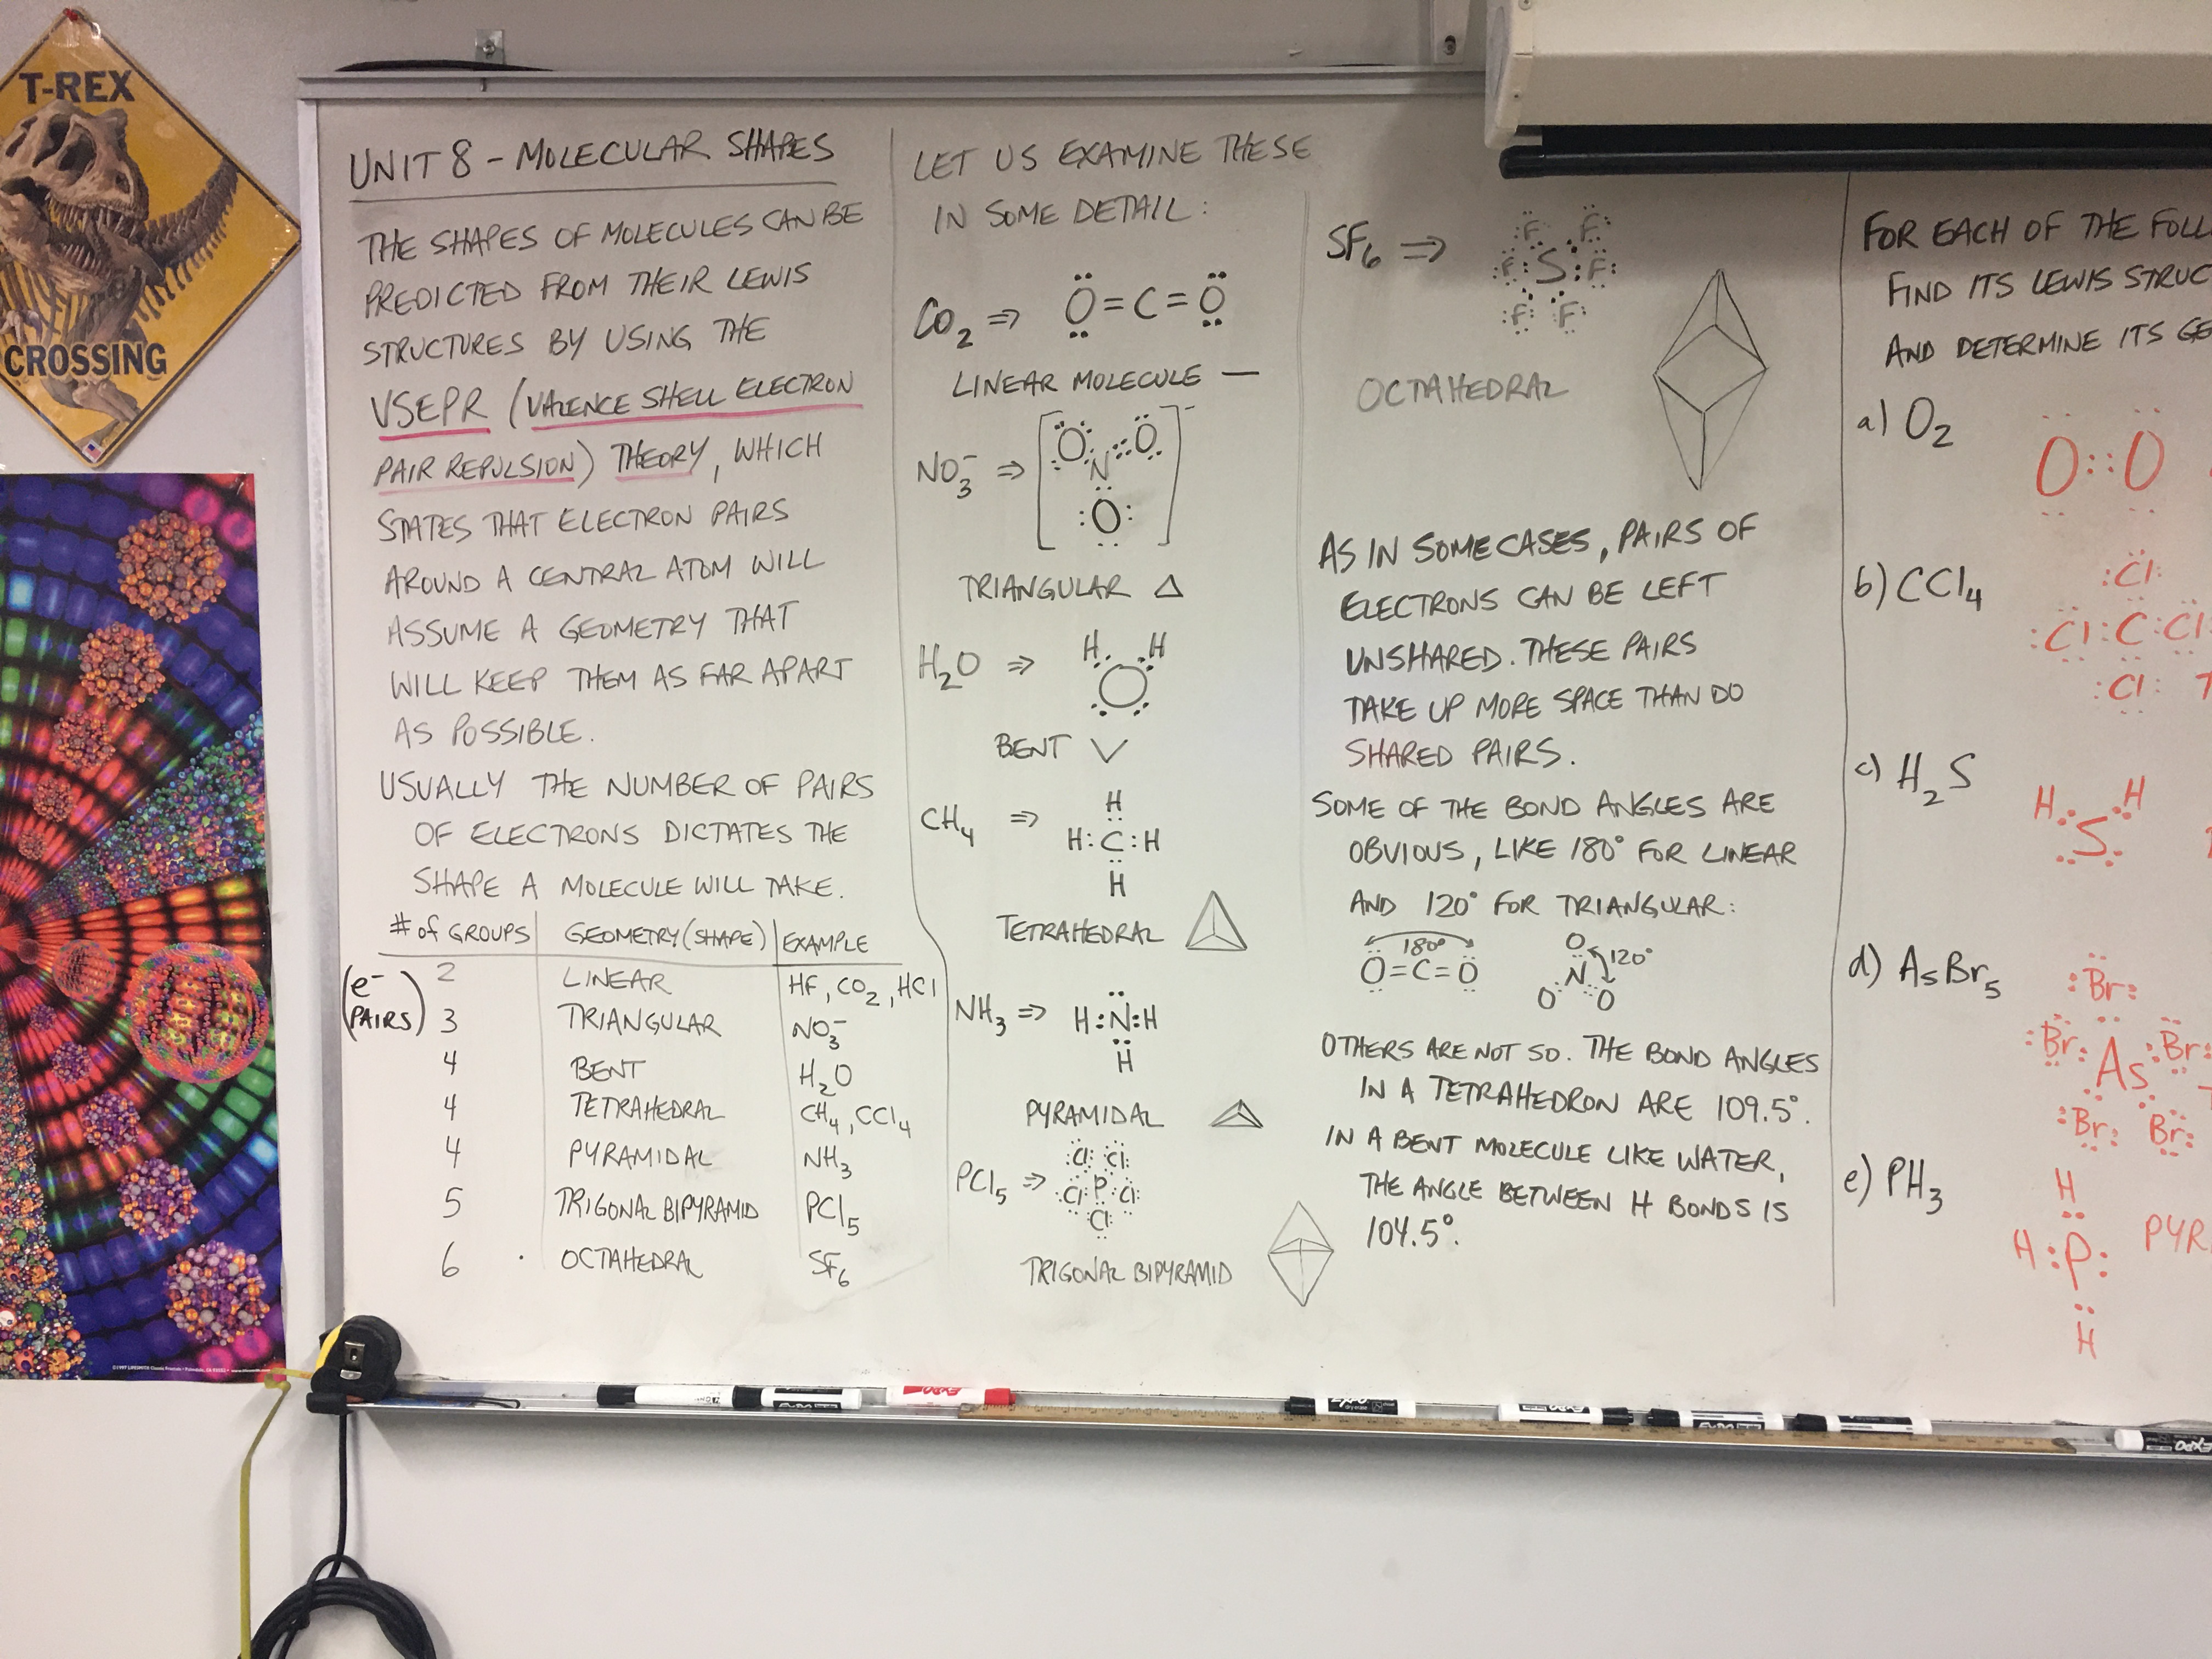 T-REX
CROSSING
UNIT 8 - MOLECULAR SHAPES
THE SHAPES OF MOLECULES CAN BE
PREDICTED FROM THEIR LEWIS
STRUCTURES BY USING THE
VSEPR (VALENCE SHELL ELECTRON
PAIR REPULSION) THEORY, WHICH
STATES THAT ELECTRON PAIRS
AROUND A CENTRAL ATOM WILL
ASSUME A GEOMETRY THAT
WILL KEEP THEM AS FAR APART
AS POSSIBLE.
USUALLY THE NUMBER OF PAIRS
OF ELECTRONS DICTATES THE
SHAPE A MOLECULE WILL TAKE.
# of GROUPS GEOMETRY (SHAPE) EXAMPLE
(e- PAIRS)
2 LINEAR HF, CO2, HCl
3 TRIANGULAR NO3-
4 BENT H2O
4 TETRAHEDRAL CH4, CCl4
4 PYRAMIDAL NH3
5 TRIGONAL BIPYRAMID PCl5
6 OCTAHEDRAL SF6
LET US EXAMINE THESE
IN SOME DETAIL:
CO2 ⇒ O=C=O
LINEAR MOLECULE —
NO3- ⇒ [O N O
O]-
TRIANGULAR △
H2O ⇒ H H
O
BENT
CH4 ⇒ H
H:C:H
H
TETRAHEDRAL
NH3 ⇒ H:N:H
H
PYRAMIDAL
PCl5 ⇒ Cl Cl
Cl P Cl
Cl
TRIGONAL BIPYRAMID
SF6 ⇒ F F
F S F
F F
OCTAHEDRAL
AS IN SOME CASES, PAIRS OF
ELECTRONS CAN BE LEFT
UNSHARED. THESE PAIRS
TAKE UP MORE SPACE THAN DO
SHARED PAIRS.
SOME OF THE BOND ANGLES ARE
OBVIOUS, LIKE 180° FOR LINEAR
AND 120° FOR TRIANGULAR:
180°
O=C=O
O
N 120°
O O
OTHERS ARE NOT SO. THE BOND ANGLES
IN A TETRAHEDRON ARE 109.5°.
IN A BENT MOLECULE LIKE WATER,
THE ANGLE BETWEEN H BONDS IS
104.5°.
FOR EACH OF THE FOLL
FIND ITS LEWIS STRUC
AND DETERMINE ITS GE
a) O2
O::O
b) CCl4
Cl
Cl:C:Cl
Cl T
c) H2S
H H
S
d) AsBr5
Br
Br As Br
Br Br
e) PH3
H
H:P: PYR
H
EXPO